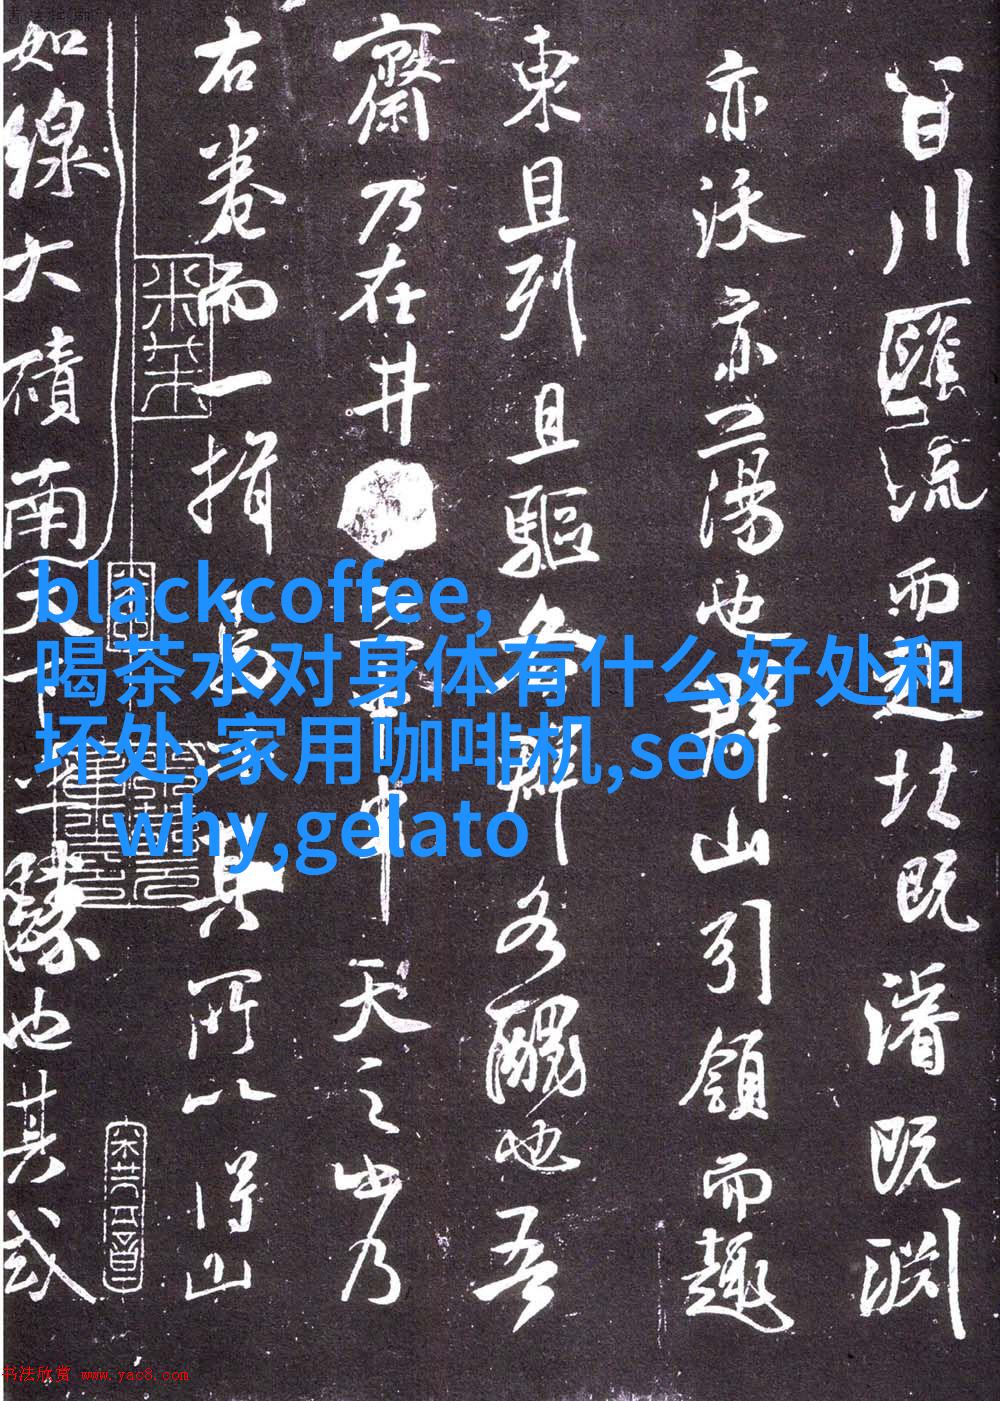 百川匯流而北既濬既淵
亦沃亦蕩也群山引領而趨
東且列且驅各醜也吾
齋乃在井天之乃
右卷而一指其所以得山
如線大磧南天也其或
blackcoffee,
喝茶水对身体有什么好处和
坏处,家用咖啡机,seo
why,gelato
书法欣赏 www.yac8.com